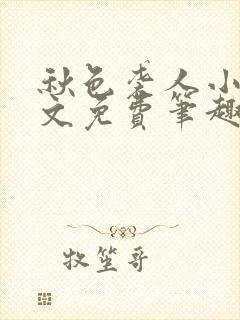 秋色袭人小
文免费笔趣
牧笙哥